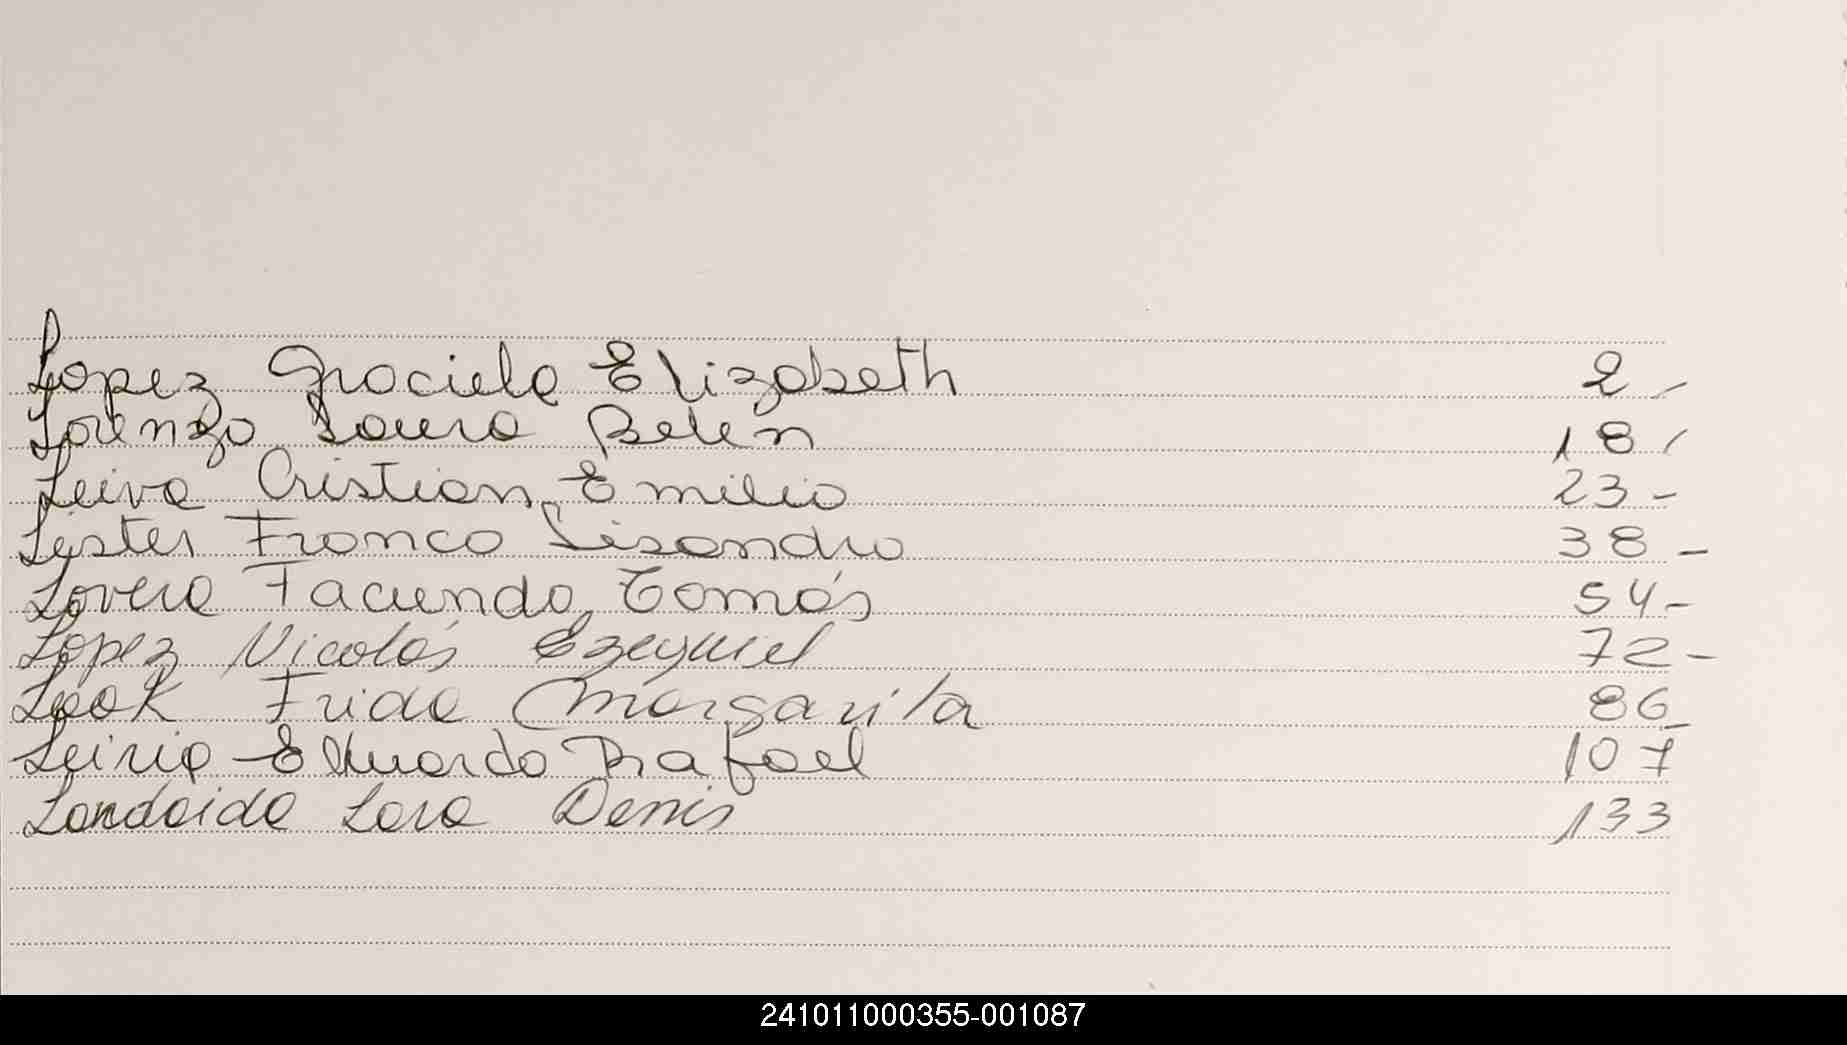 Lopez Graciela Elizabeth 2 -
Lorenzo Laura Belen 18 -
Leiva Cristian Emilio 23 -
Lyster Franco Lisandro 38 -
Lovera Facundo Tomás 54 -
Lopez Nicolás Ezequiel 72 -
Frida Margarita 86 -
Eduardo Rafael 107
Landaida Lara Denis 133
241011000355-001087